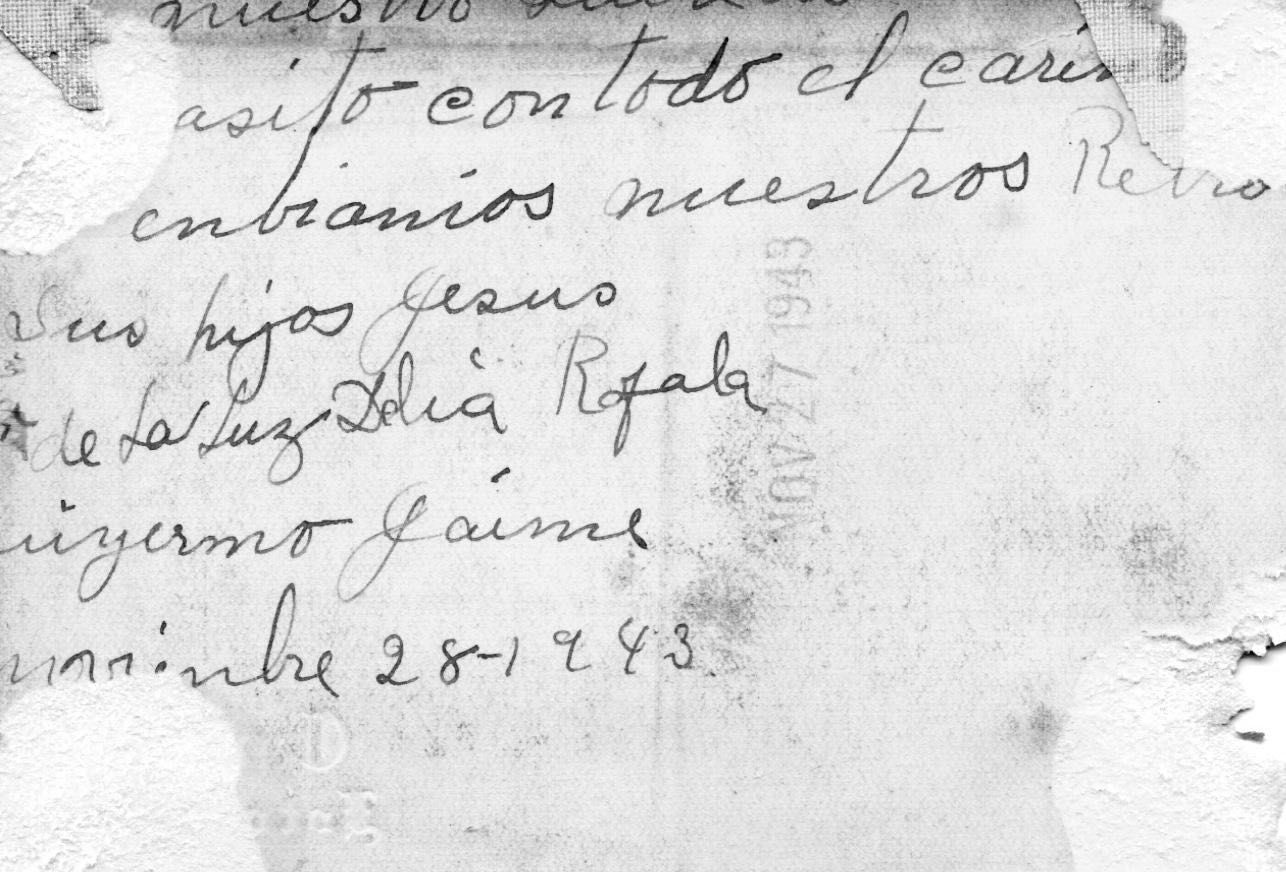 nuestro
asito con todo el cariñ
enbiamos nuestros Retra
Sus hijos Jesus
de La Luz Delia Rafala
uiyermo Jaime
novienbre 28-1943
NOV 27 1943